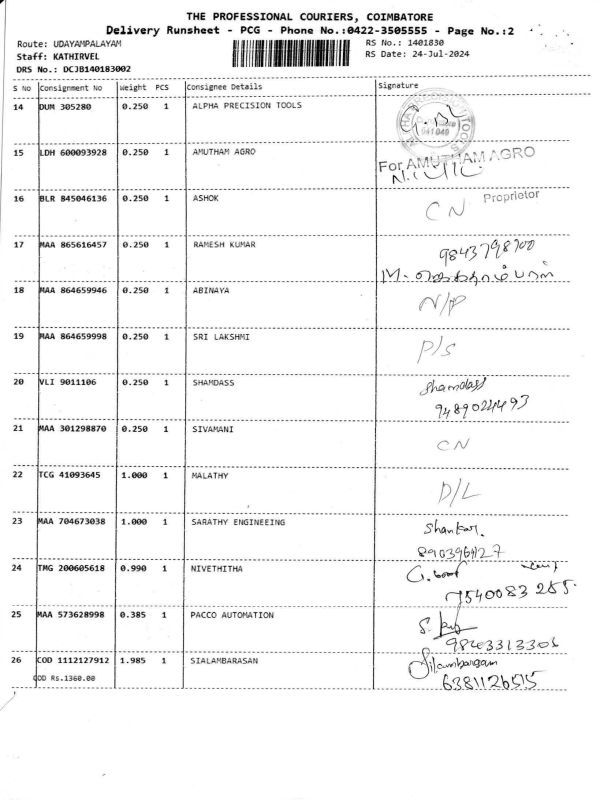 THE PROFESSIONAL COURIERS, COIMBATORE
Delivery Runsheet - PCG - Phone No.:0422-3505555 - Page No.:2
Route: UDAYAMPALAYAM RS No.: 1401830
Staff: KATHIRVEL RS Date: 24-Jul-2024
DRS No.: DCJB140183002
S No Consignment No Weight PCS Consignee Details Signature
14 DUM 305280 0.250 1 ALPHA PRECISION TOOLS
15 LDH 600093928 0.250 1 AMUTHAM AGRO For AMUTHAM AGRO
Proprietor
16 BLR 845046136 0.250 1 ASHOK CN
17 MAA 865616457 0.250 1 RAMESH KUMAR 9843798700
18 MAA 864659946 0.250 1 ABINAYA N/P
19 MAA 864659998 0.250 1 SRI LAKSHMI P/S
20 VLI 9011106 0.250 1 SHAMDASS Shamdass
9489024493
21 MAA 301298870 0.250 1 SIVAMANI CN
22 TCG 41093645 1.000 1 MALATHY D/L
23 MAA 704673038 1.000 1 SARATHY ENGINEEING Shankar.
24 TMG 200605618 0.990 1 NIVETHITHA
7540083255.
25 MAA 573628998 0.385 1 PACCO AUTOMATION
9843313306
26 COD 1112127912 1.985 1 SIALAMBARASAN Silambarasan
COD Rs.1360.00 6381126515